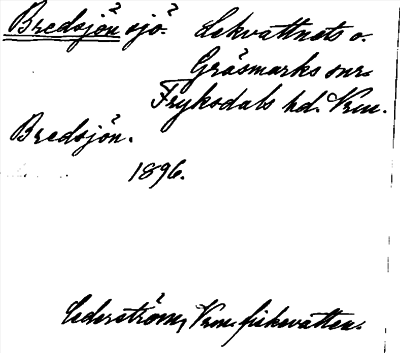 Bredsjön² sjö.² Lekvattnets o.
Gräsmarks snr.
Fryksdals hd. Vrm.
Bredsjön.
1896.
Cederström, Vrm. fiskevatten.